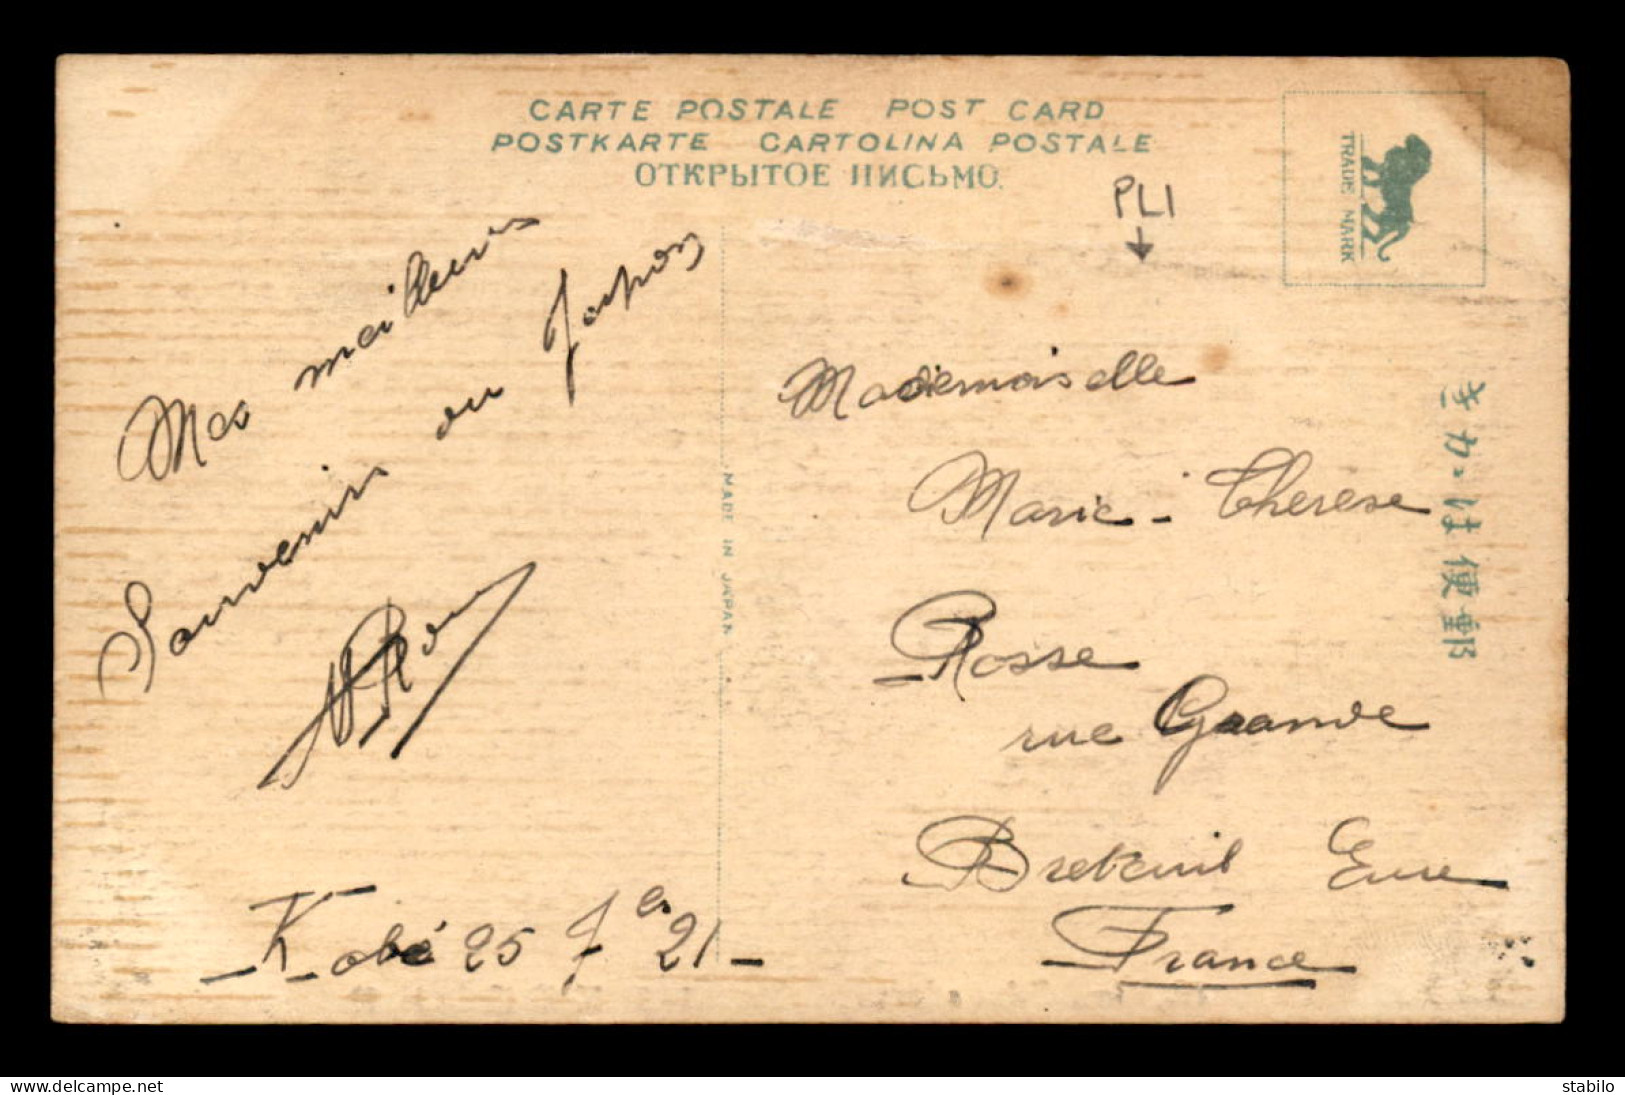 CARTE POSTALE POST CARD
POSTKARTE CARTOLINA POSTALE
ОТКРЫТОЕ ПИСЬМО
PLI
TRADE MARK
Mes meilleurs
Souvenirs du Japon
Kobé 25 7er 21
MADE IN JAPAN
Mademoiselle
Marie-Therese
Rosse
rue Grande
Breteuil Eure
France
郵便はかき
www.delcampe.net
stabilo